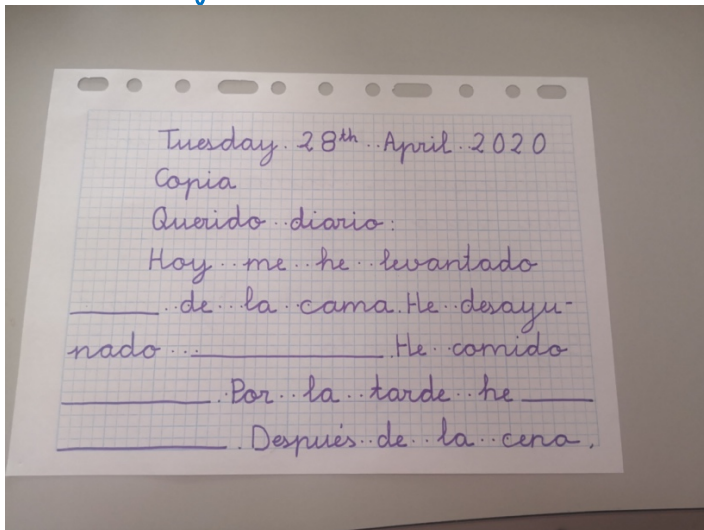 Tuesday 28th April 2020
Copia
Querido diario:
Hoy me he levantado
______ de la cama. He desayu-
nado ____________. He comido
__________. Por la tarde he _____
___________. Después de la cena,